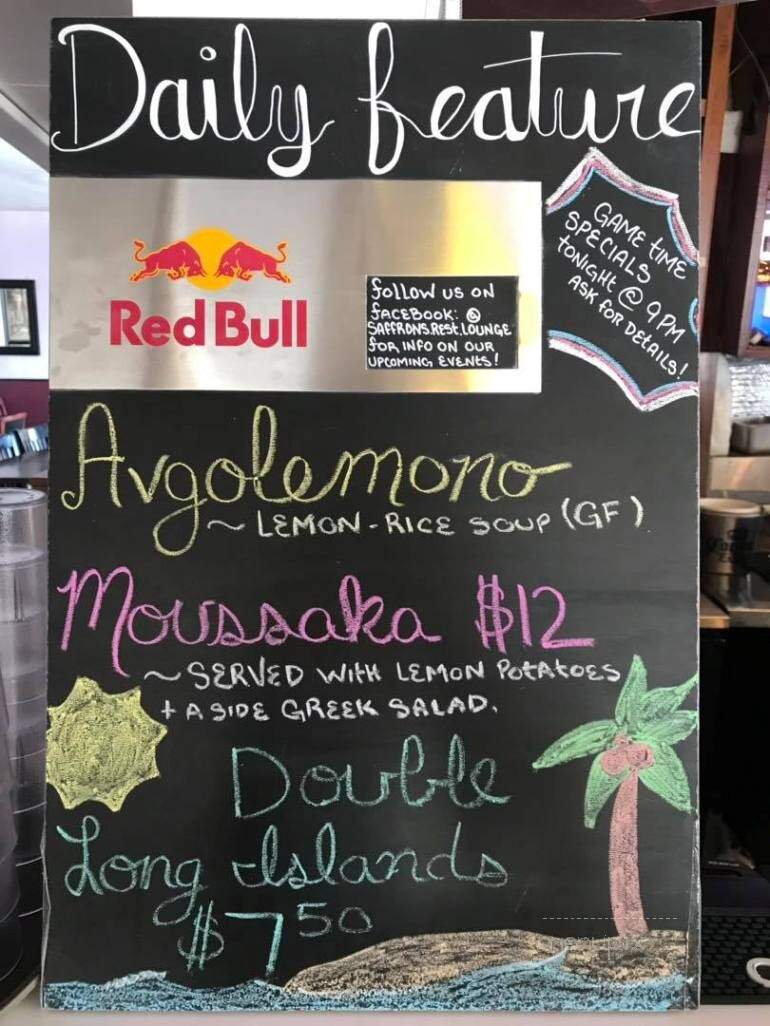 Daily feature
Red Bull
follow us on
facebook: @
saffrons.rest.lounge
for info on our
upcoming events!
Game time
specials
tonight @ 9pm
Ask for details!
Avgolemono
~ Lemon-Rice soup (GF)
Moussaka $12
~ Served with lemon potatoes
+ a side Greek salad.
Double
Long Islands
$7 50